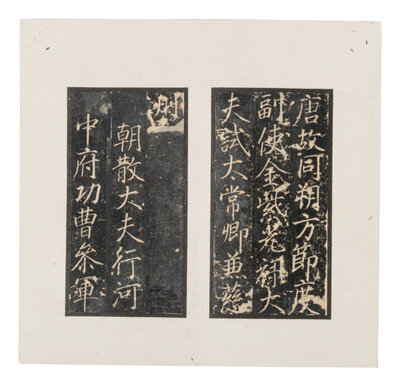 唐故同朔方節度
副使金紫光祿大
夫試太常卿兼慈
州
朝散大夫行河
中府功曹叅軍